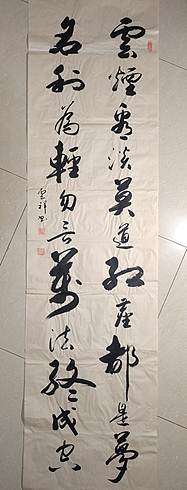 雲煙看淡莫道紅塵都是夢
名利為輕勿言萬法終成空